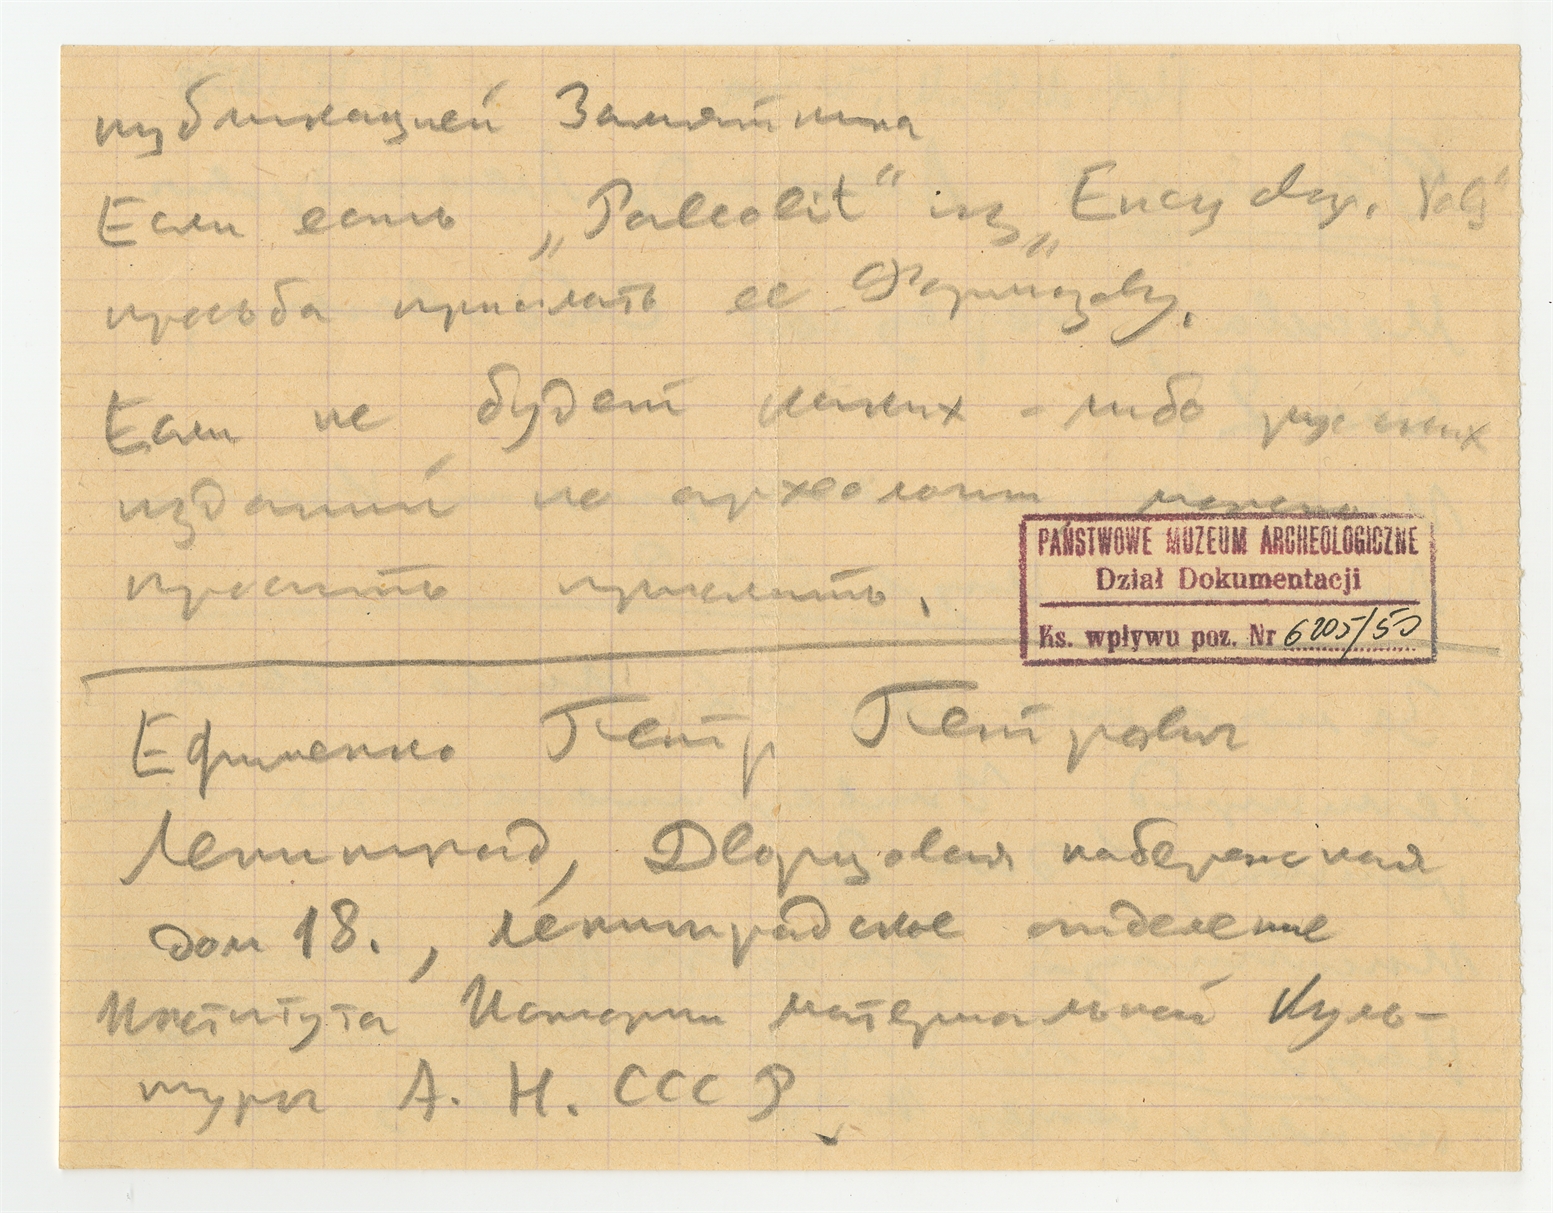 публикацией Замятнина
Если есть „Paleolit“ из „Encyclop.
просьба прислать ее Формозову.
Если не будет каких-либо нужных
изданий по археологии можно
просить прислать.
PAŃSTWOWE MUZEUM ARCHEOLOGICZNE
Dział Dokumentacji
Ks. wpływu poz. Nr 6205/50
Ефименко Петр Петрович
Ленинград, Дворцовая набережная
дом 18., Ленинградское отделение
Института Истории материальной Куль-
туры А. Н. СССР